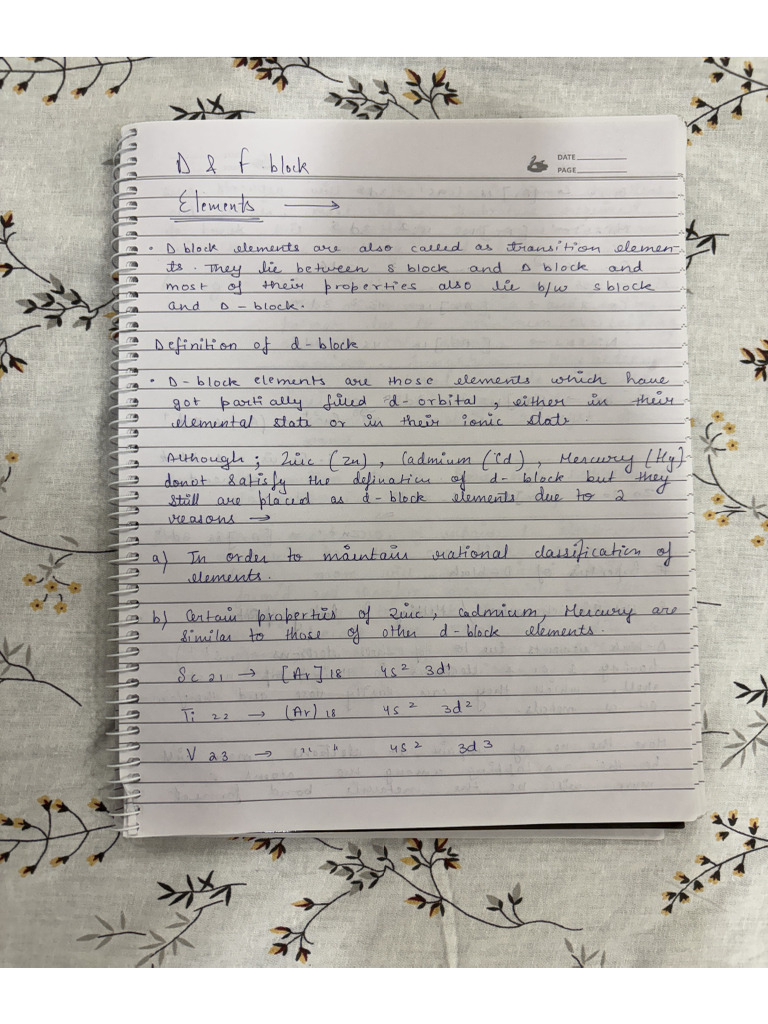 DATE
PAGE
D & F-block
Elements →
• D block elements are also called as transition elemen-
ts. They lie between S block and D block and
most of their properties also lie b/w s block
and D-block.
Definition of d-block
• D-block elements are those elements which have
got partially filled d-orbital, either in their
elemental state or in their ionic state.
Although; Zinc (Zn), Cadmium (Cd), Mercury (Hg)
donot satisfy the defination of d-block but they
still are placed as d-block elements due to 2
reasons →
a) In order to maintain rational classification of
elements.
b) Certain properties of Zinc, Cadmium, Mercury are
similar to those of other d-block elements.
Sc 21 → [Ar] 18 4s² 3d¹
Ti 22 → (Ar) 18 4s² 3d²
V 23 → " " 4s² 3d³